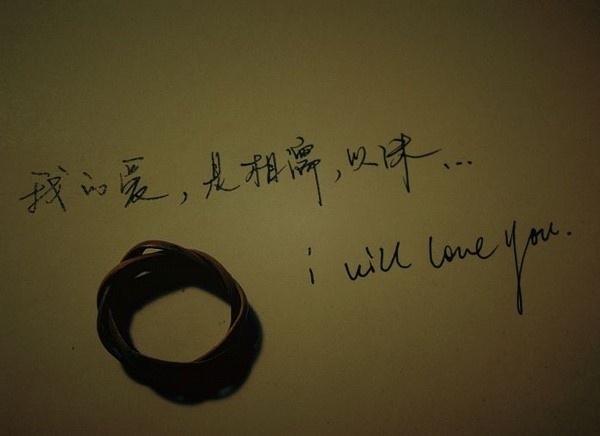 我的爱，是相濡，以沫...
i will love you.